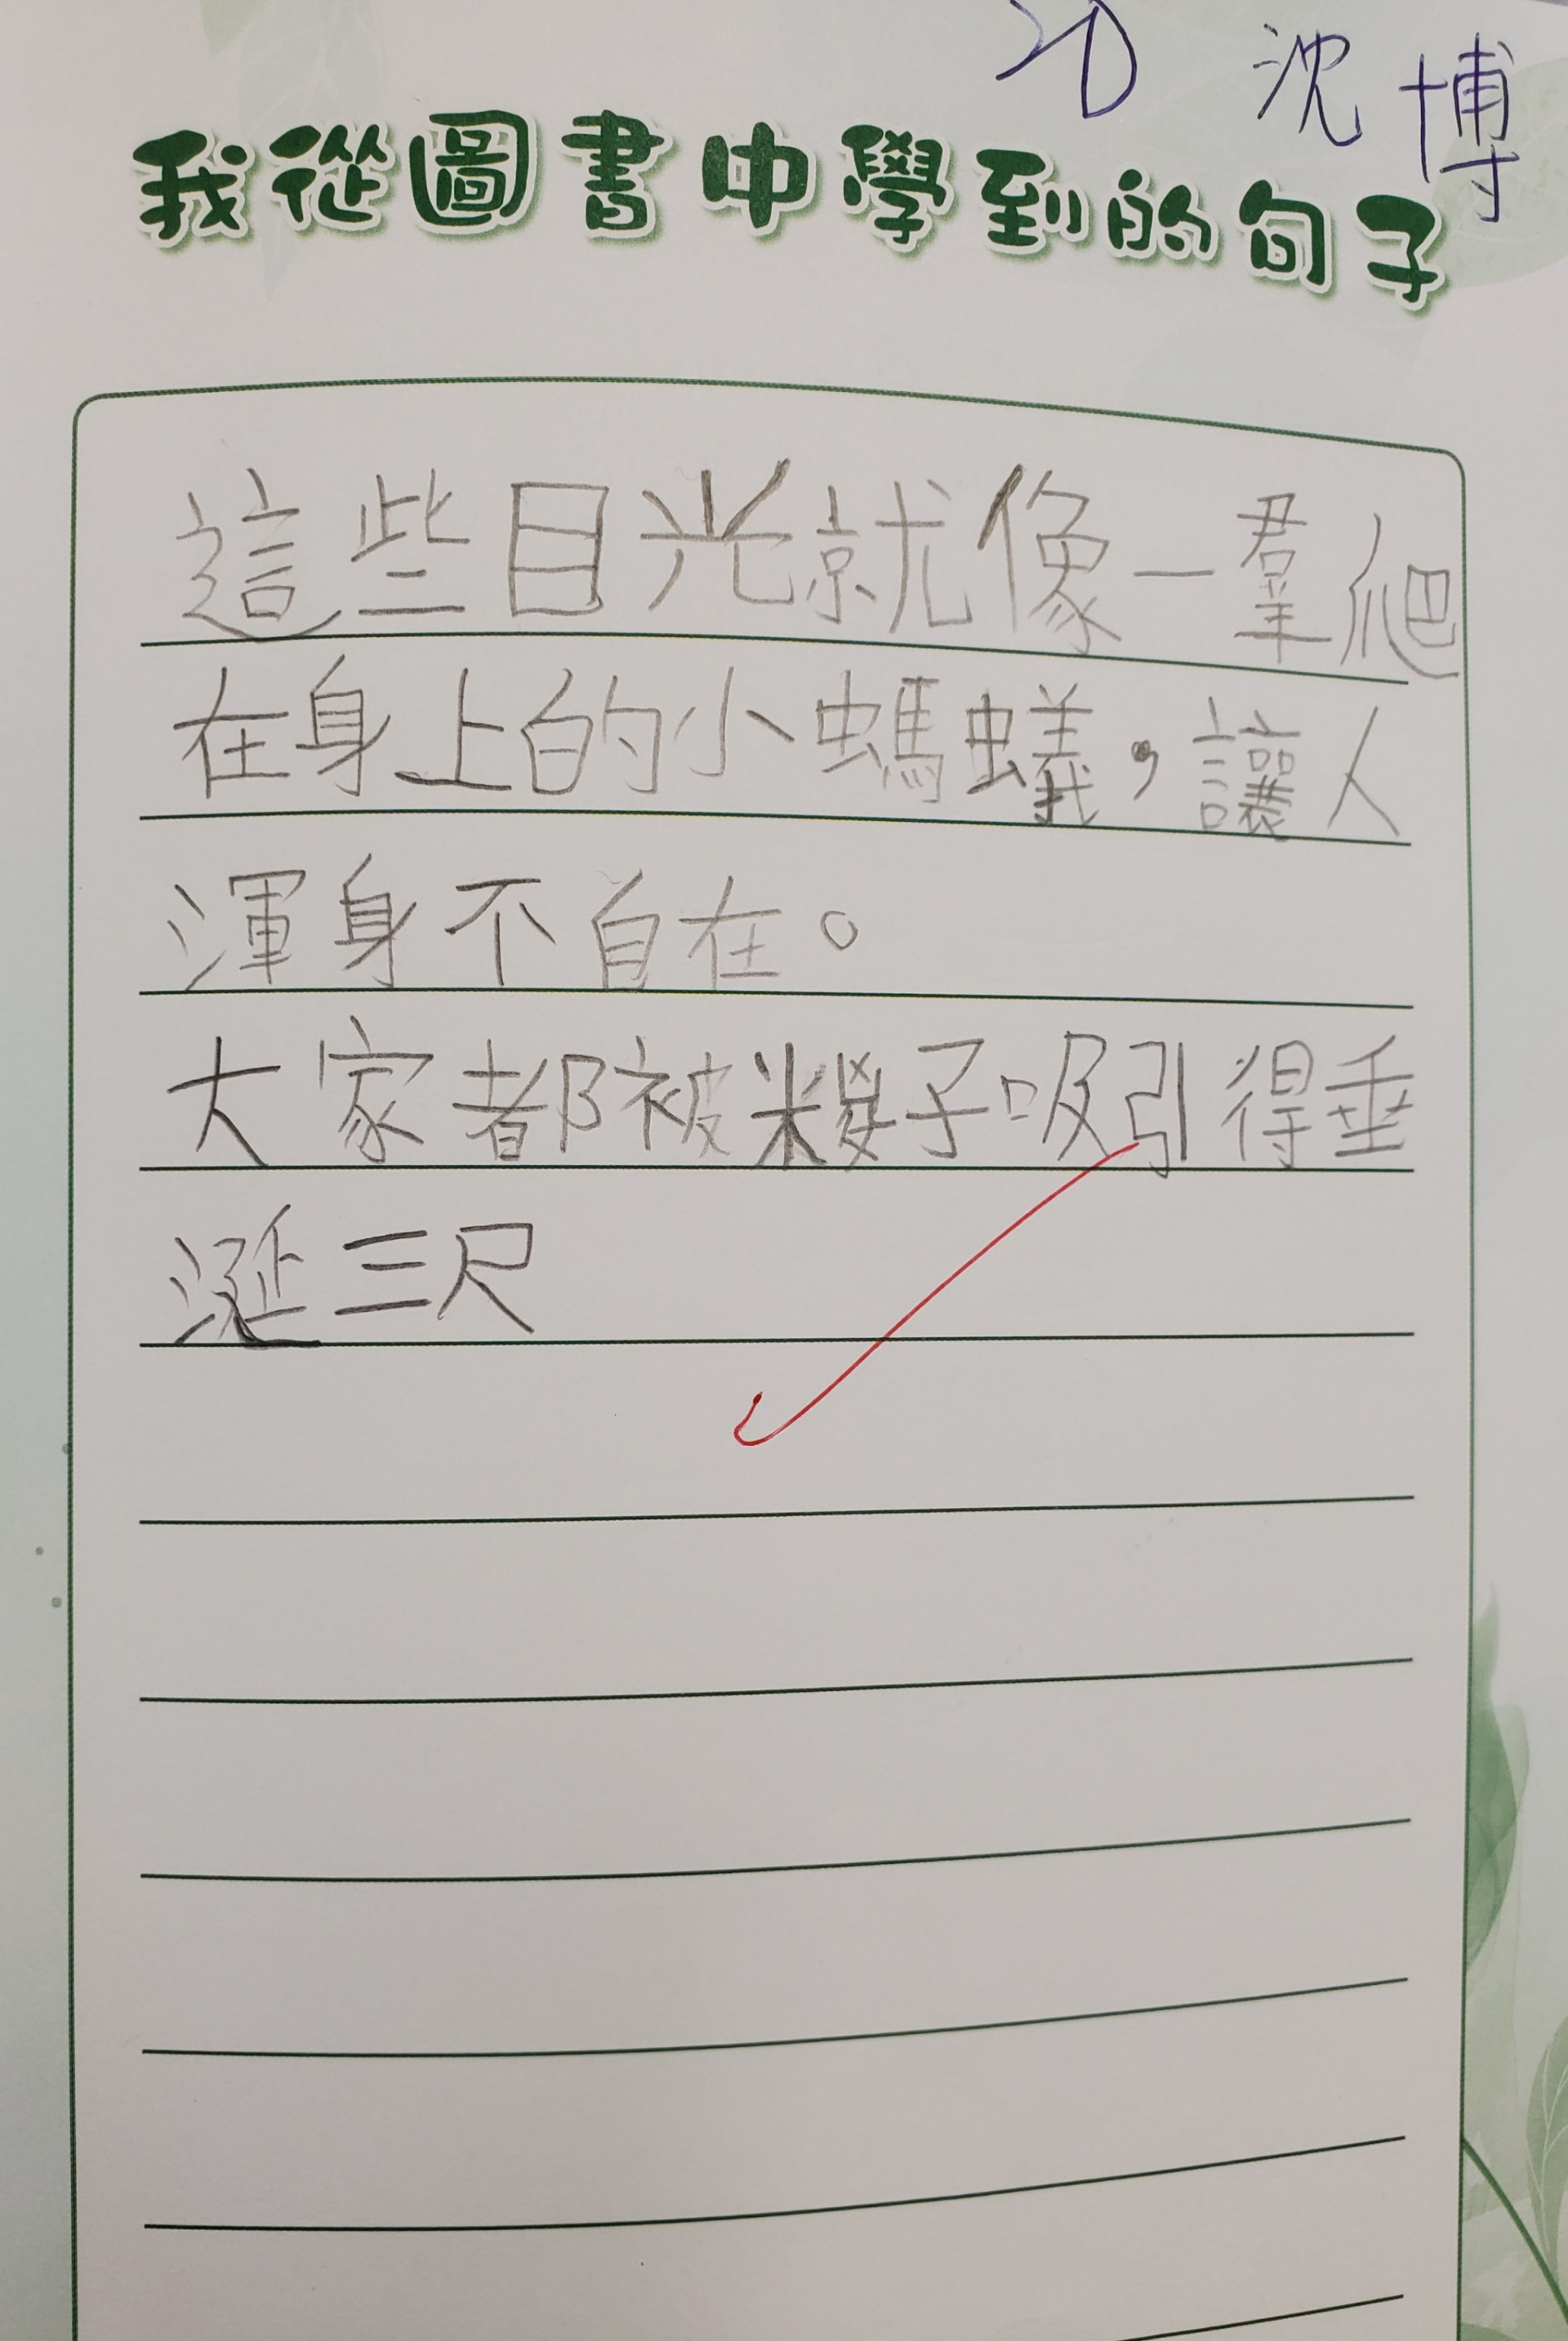 20 沈博
我從圖書中學到的句子
這些目光就像一羣爬
在身上的小螞蟻，讓人
渾身不自在。
大家都被糉子吸引得垂
涎三尺